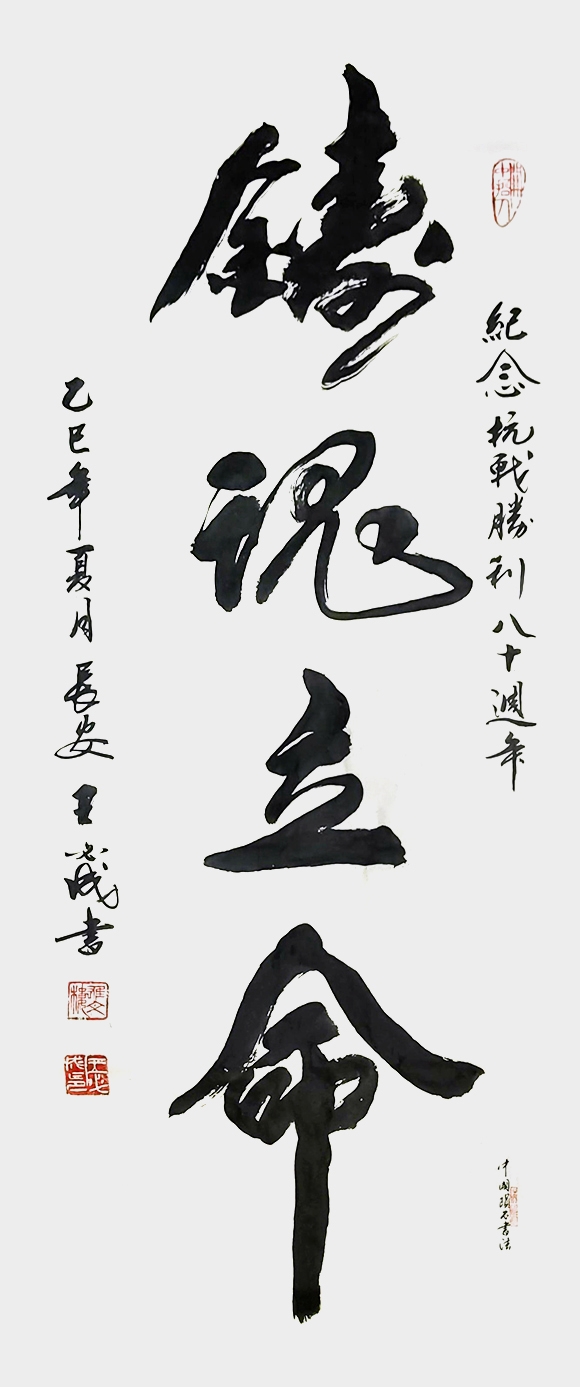 紀念抗戰勝利八十週年
鑄魂立命
乙巳年夏月長安王必成書
中國書法